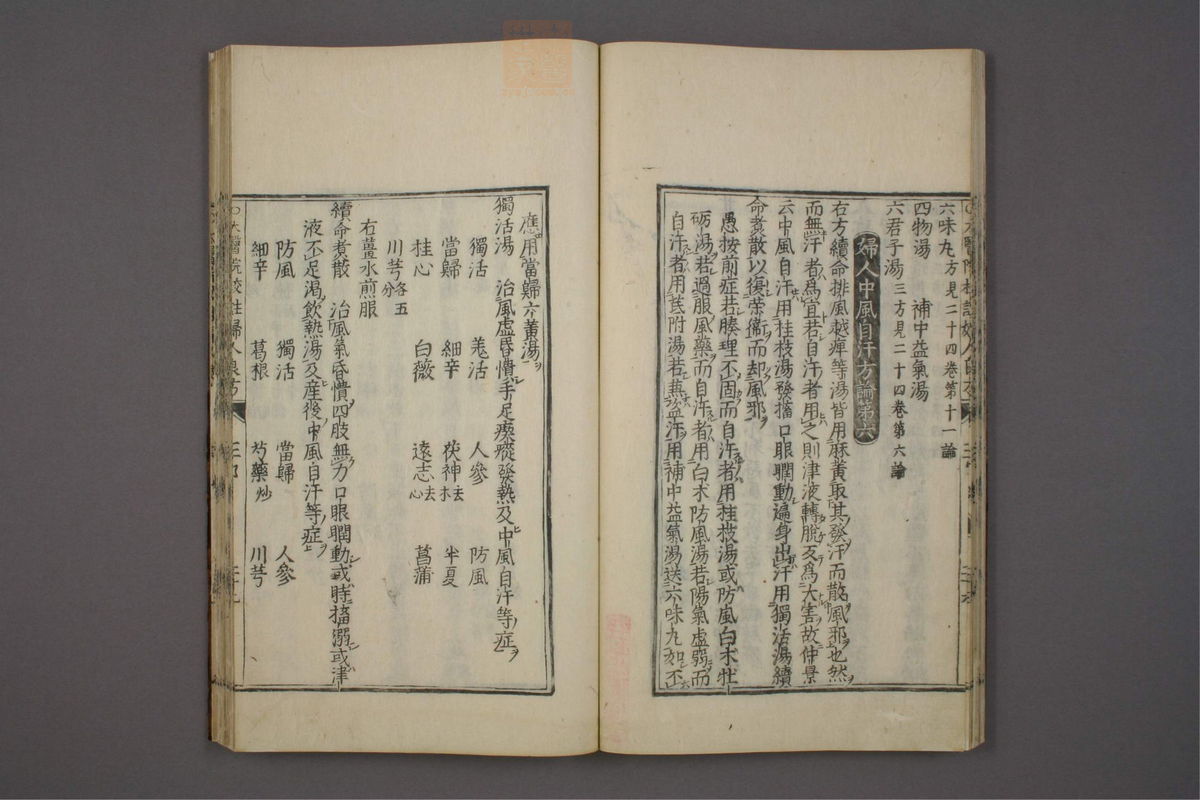 六味丸方見二十四卷第十一論
四物湯　補中益氣湯
六君子湯三方見二十四卷第六論
婦人中風自汗方論第六
右方續命排風越痺等湯皆用麻黃取其發汗而散風邪也然
而無汗者爲宜若自汗者用之則津液轉脫反爲大害故仲景
云中風自汗用桂枝湯發搐口眼瞤動遍身出汗用獨活湯續
命煮散以復荣衛而却風邪
愚按前症若腠理不固而自汗者用桂枝湯或防風白朮牡
礪湯若過服風藥而自汗者用白朮防風湯若陽氣虛弱而
自汗者用芪附湯若兼盜汗用補中益氣湯送六味丸如不
應用當歸六黃湯
獨活湯　治風虛昏憒手足瘈瘲發熱及中風自汗等症
獨活　羌活　人參　防風
當歸　細辛　茯神去木　半夏
桂心　白薇　遠志去心　菖蒲
川芎各五分
右薑水煎服
續命煮散　治風氣昏憒四肢無力口眼瞤動或時搐溺或津
液不足渴飲熱湯及產後中風自汗等症
防風　獨活　當歸　人參
細辛　葛根　芍藥炒　川芎
太醫院校註婦人良方